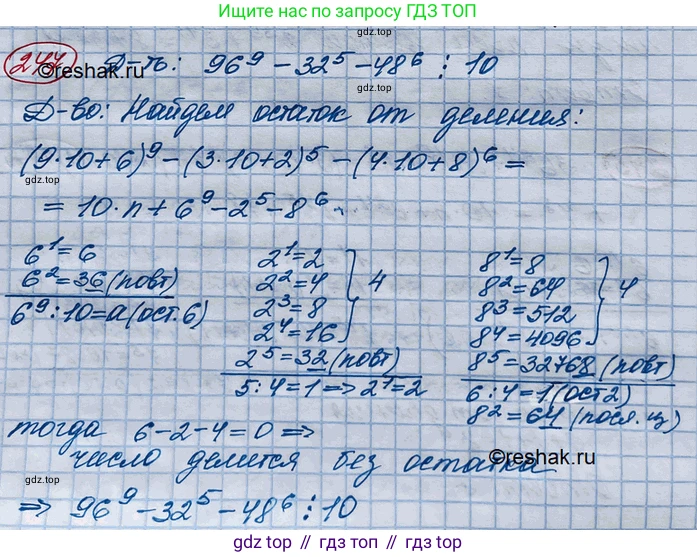 Ищите нас по запросу ГДЗ ТОП
247 ©reshak.ru Д-ть: 96⁹ - 32⁵ - 48⁶ ⋮ 10
gdz.top
gdz.top
Д-во: Найдем остаток от деления:
(9·10+6)⁹ - (3·10+2)⁵ - (4·10+8)⁶ =
gdz.top
gdz.top
= 10·n + 6⁹ - 2⁵ - 8⁶.
6¹=6
6²=36 (повт)
6⁹:10=a(ост.6)
2¹=2
2²=4
2³=8
2⁴=16
} 4
2⁵=32 (повт)
5:4=1 => 2¹=2
8¹=8
8²=64
8³=512
8⁴=4096
} 4
8⁵=32768 (повт)
6:4=1(ост2)
8²=64 (посл.ц)
gdz.top
тогда 6-2-4=0 =>
число делится без остатка
©reshak.ru
=> 96⁹ - 32⁵ - 48⁶ ⋮ 10
gdz.top // гдз.top // gdz.top // гдз.top